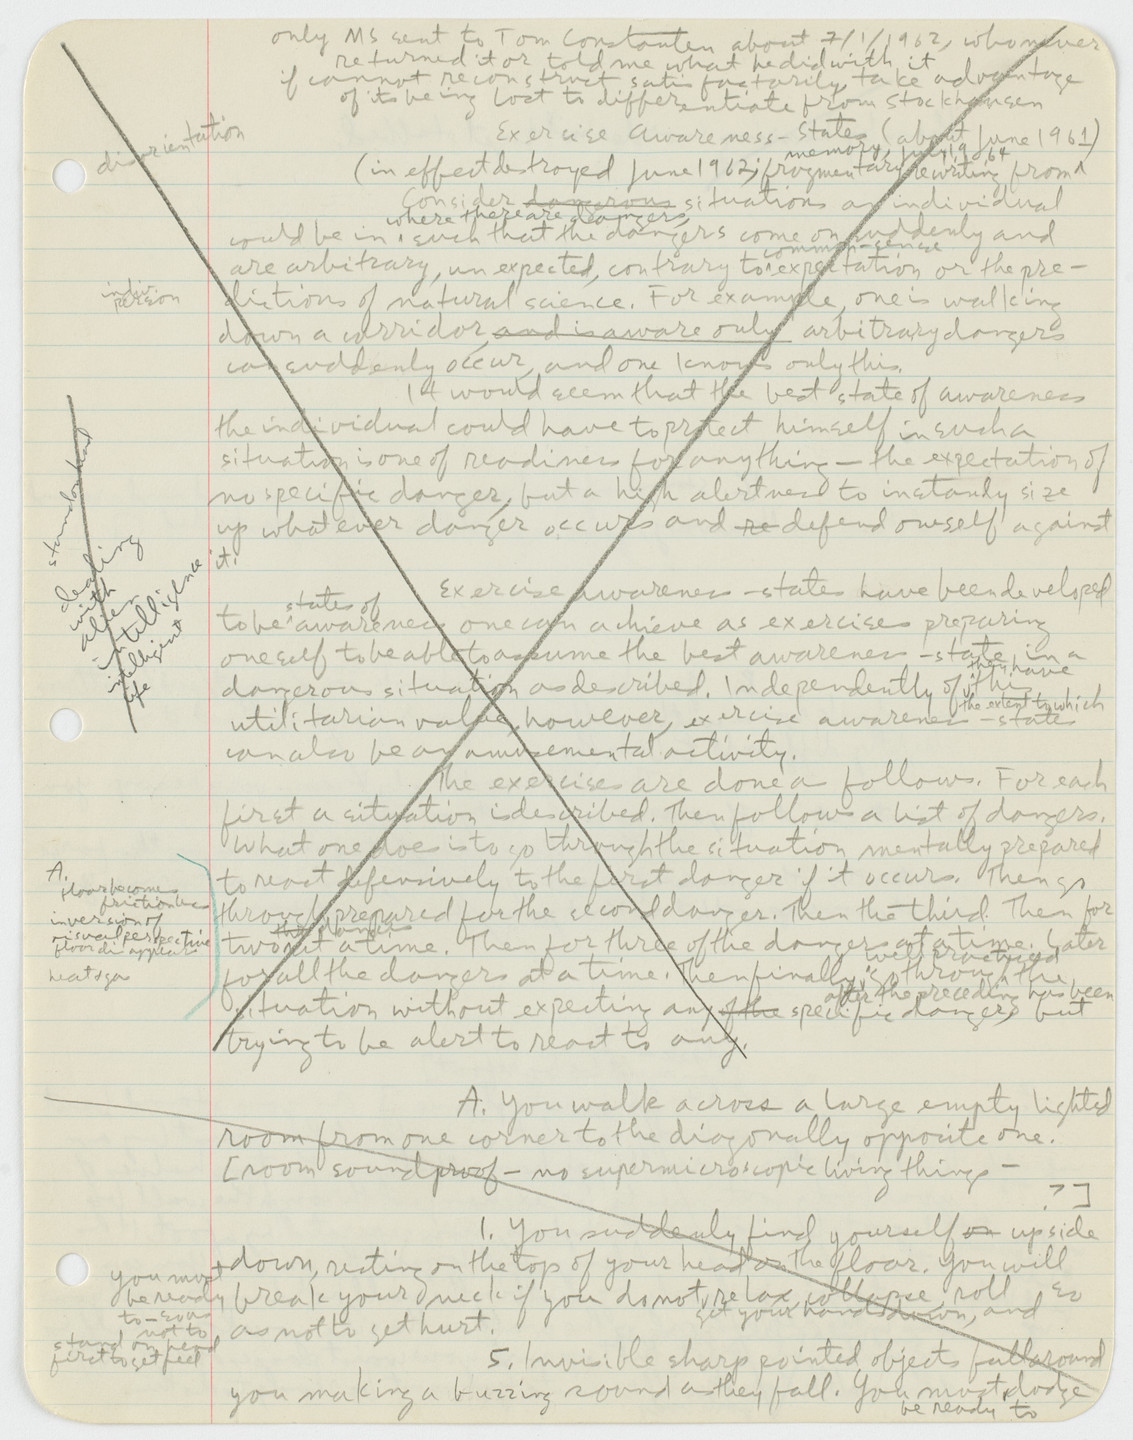 only MS sent to Tom Constanten about 7/1/1962, who never
returned it or told me what he did with it
if cannot reconstruct satisfactorily, take advantage
of its being lost to differentiate from Stockhausen
disorientation
Exercise Awareness-States (about June 1961)
memory, July 1964
(in effect destroyed June 1962; fragmentary rewriting from ^
Consider dangerous situations an individual
where there are dangers,
could be in, such that the dangers come on suddenly and
common-sense
are arbitrary, unexpected, contrary to ^ expectation or the pre-
indiv.
person
dictions of natural science. For example, one is walking
down a corridor, and is aware only arbitrary dangers
can suddenly occur, and one knows only this.
It would seem that the best state of awareness
the individual could have to protect himself in such a
situation is one of readiness for anything — the expectation of
no specific danger, but a high alertness to instantly size
up whatever danger occurs and re defend oneself against
it.
stand on head
dealing
with
alien
intelligence
intelligent
life
Exercise awareness-states have been developed
states of
to be ^ awareness one can achieve as exercises preparing
oneself to be able to assume the best awareness-state in a
they have
dangerous situation as described. Independently of this
the extent to which
utilitarian value, however, exercise awareness-states
can also be an amusemental activity.
The exercises are done as follows. For each
first a situation is described. Then follows a list of dangers.
What one does is to go through the situation mentally prepared
to react defensively to the first danger if it occurs. Then go
through prepared for the second danger. Then the third. Then for
the dangers
two at a time. Then for three of the dangers at a time. Later
well practiced
for all the dangers at a time. Then finally, go through the
after the preceding has been
situation without expecting any of the specific dangers, but
trying to be alert to react to any.
A.
floor becomes
frictionless
inversion of
visual perspective
floor disappears
heat → gas
A. You walk across a large empty lighted
room from one corner to the diagonally opposite one.
[room soundproof – no supermicroscopic living things –
?]
1. You suddenly find yourself on upside
down, resting on the top of your head on the floor. You will
break your neck if you do not relax, collapse, roll so
get your hands down, and
as not to get hurt.
you must
be ready
to – so as
not to
stand on head
first to get feel
5. Invisible sharp pointed objects fall around
you making a buzzing sound as they fall. You must dodge
be ready to